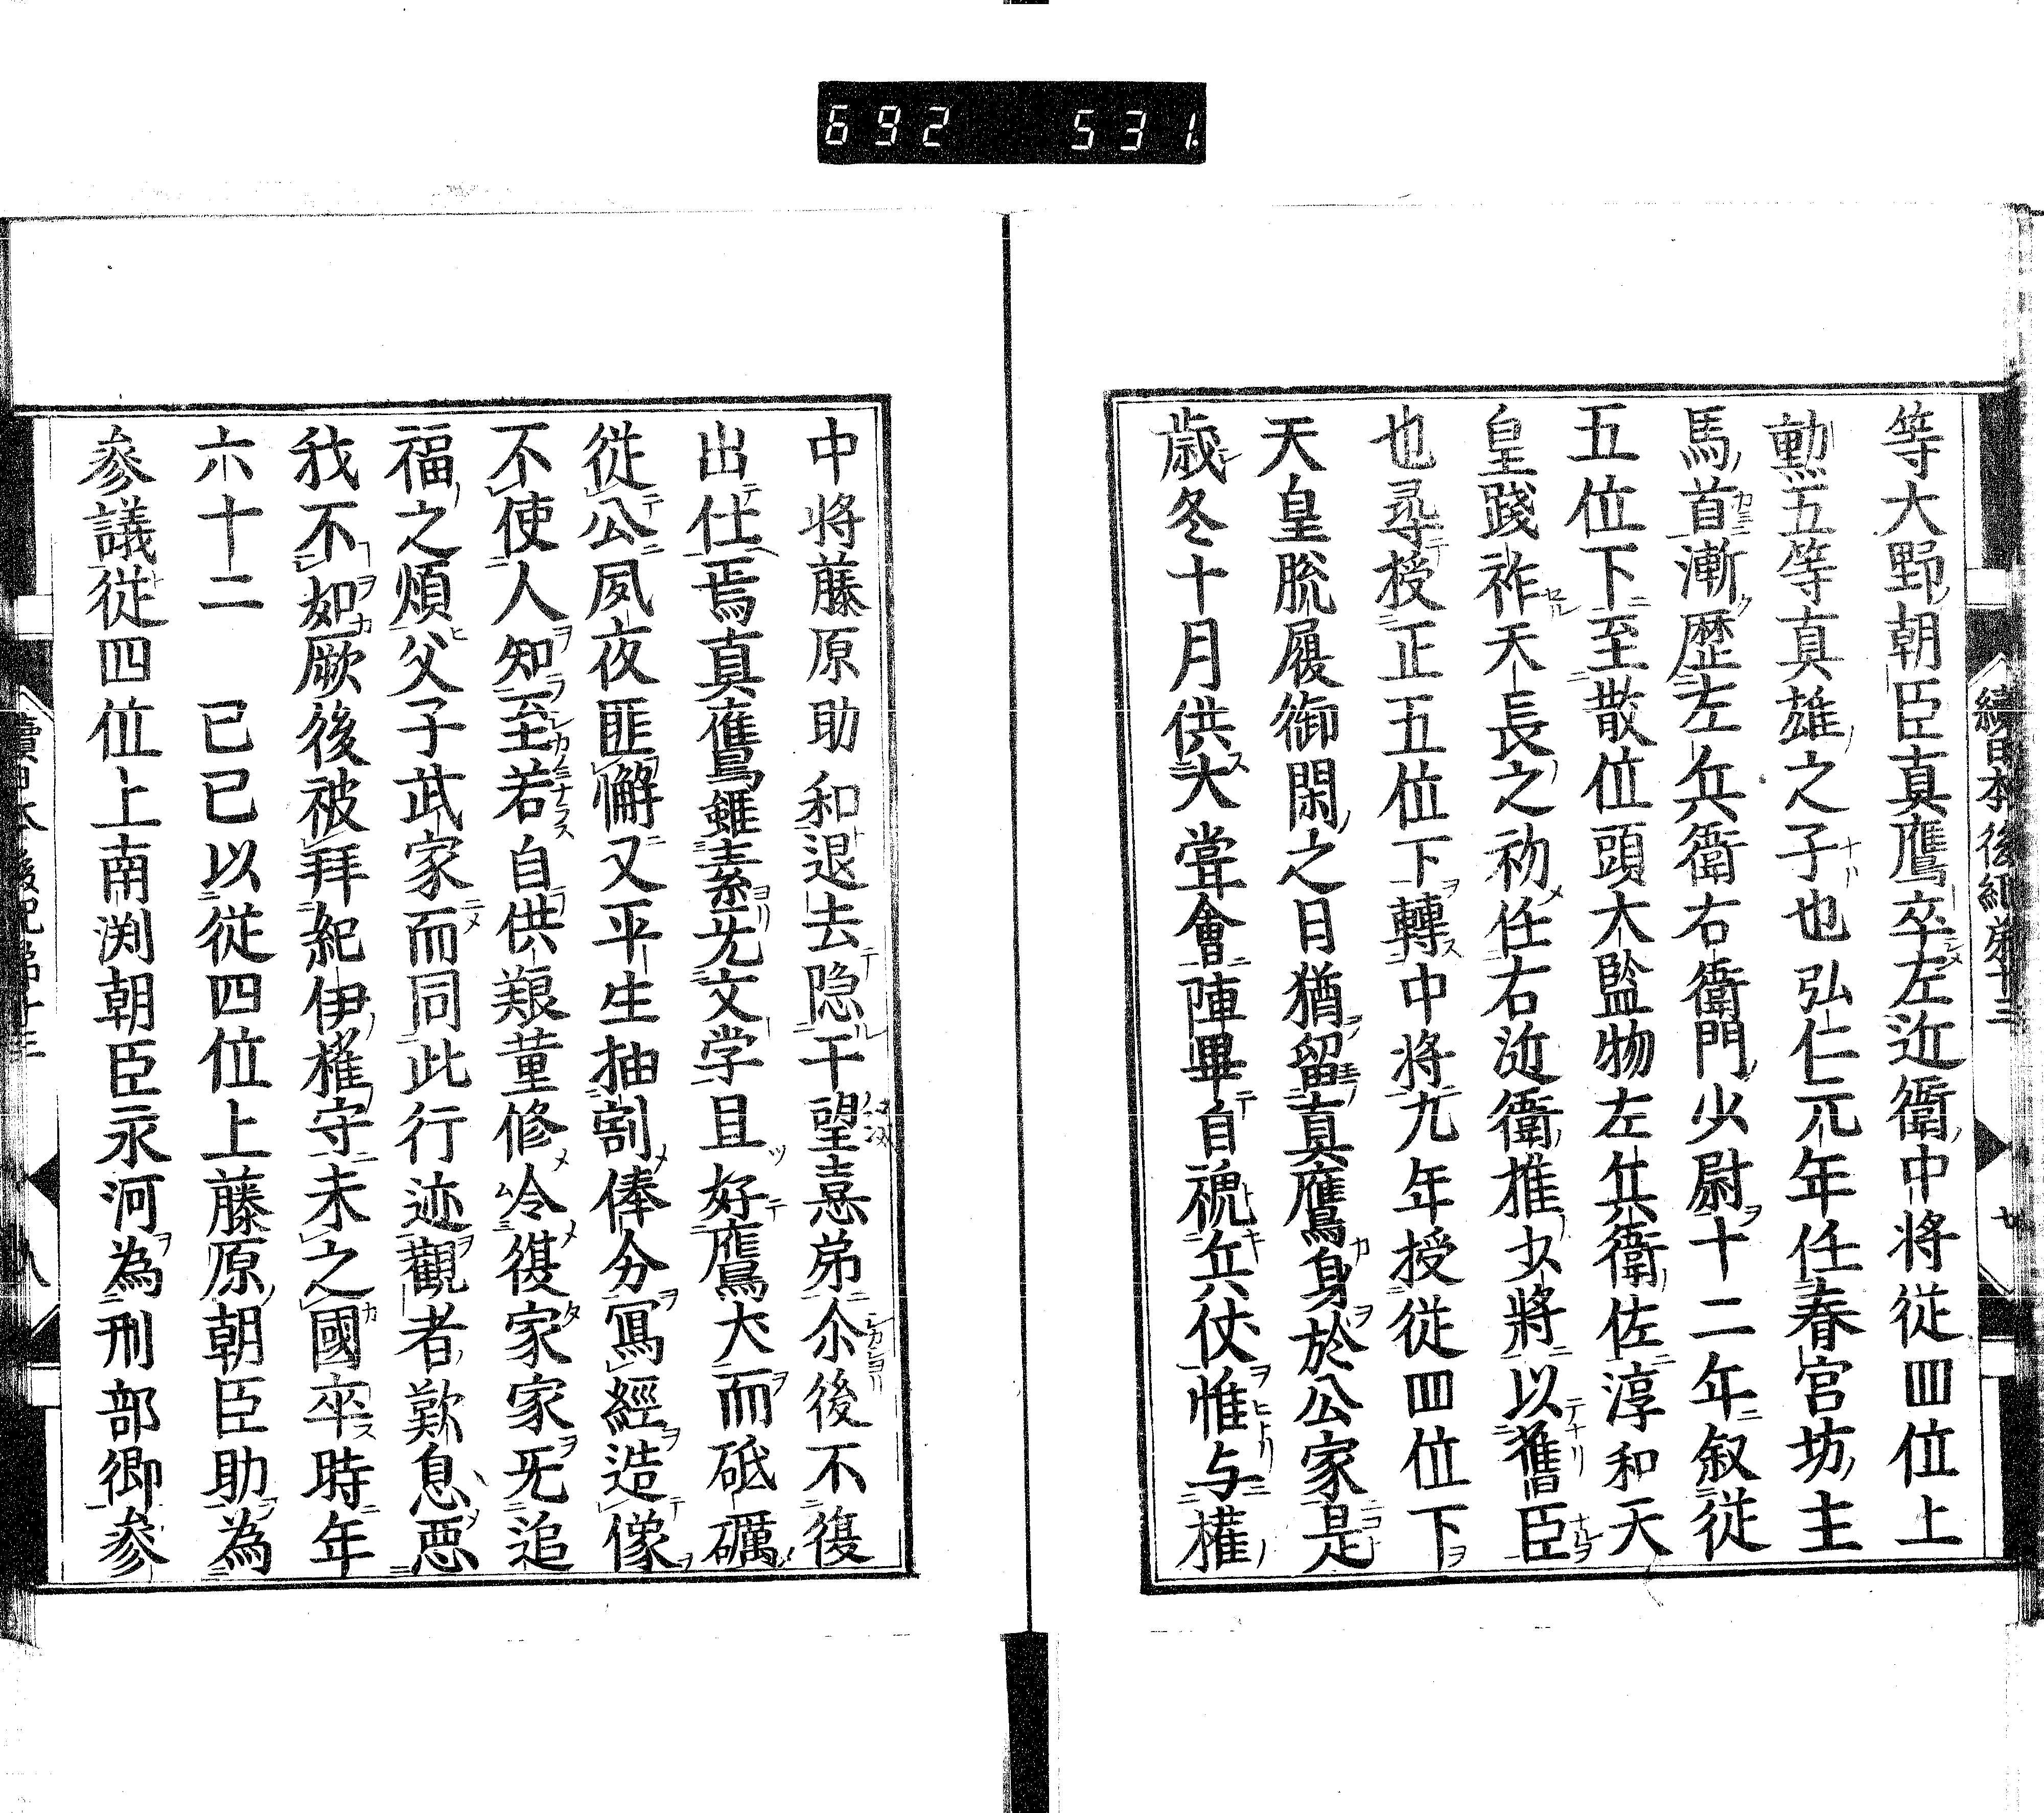 692 531
等大野朝臣真鷹卒左近衛中将従四位上
勲五等真雄之子也弘仁元年任春宮坊主
馬首漸歴左兵衛右衛門少尉十二年叙従
五位下至散位頭大監物左兵衛佐淳和天
皇踐祚天長之初任右近衛権少將以舊臣
也尋授正五位下轉中将九年授従四位下
天皇脱履御閑之日猶留真鷹身於公家是
歳冬十月供大甞會陣畢自褫兵仗惟与權
中将藤原助和退去隠干望恚弟尒後不復
出仕焉真鷹雖素无文学且好鷹犬而砥礪
従公夙夜匪懈又平生抽割俸分冩經造像
不使人知至若自供艱葷修冷復家家旡追
福之煩父子武家而同此行迹觀者歎息悪
我不如厥後被拜紀伊權守未之國卒時年
六十二 已已以従四位上藤原朝臣助為
參議従四位上南渕朝臣永河為刑部卿參
續日本後紀第十三 廿